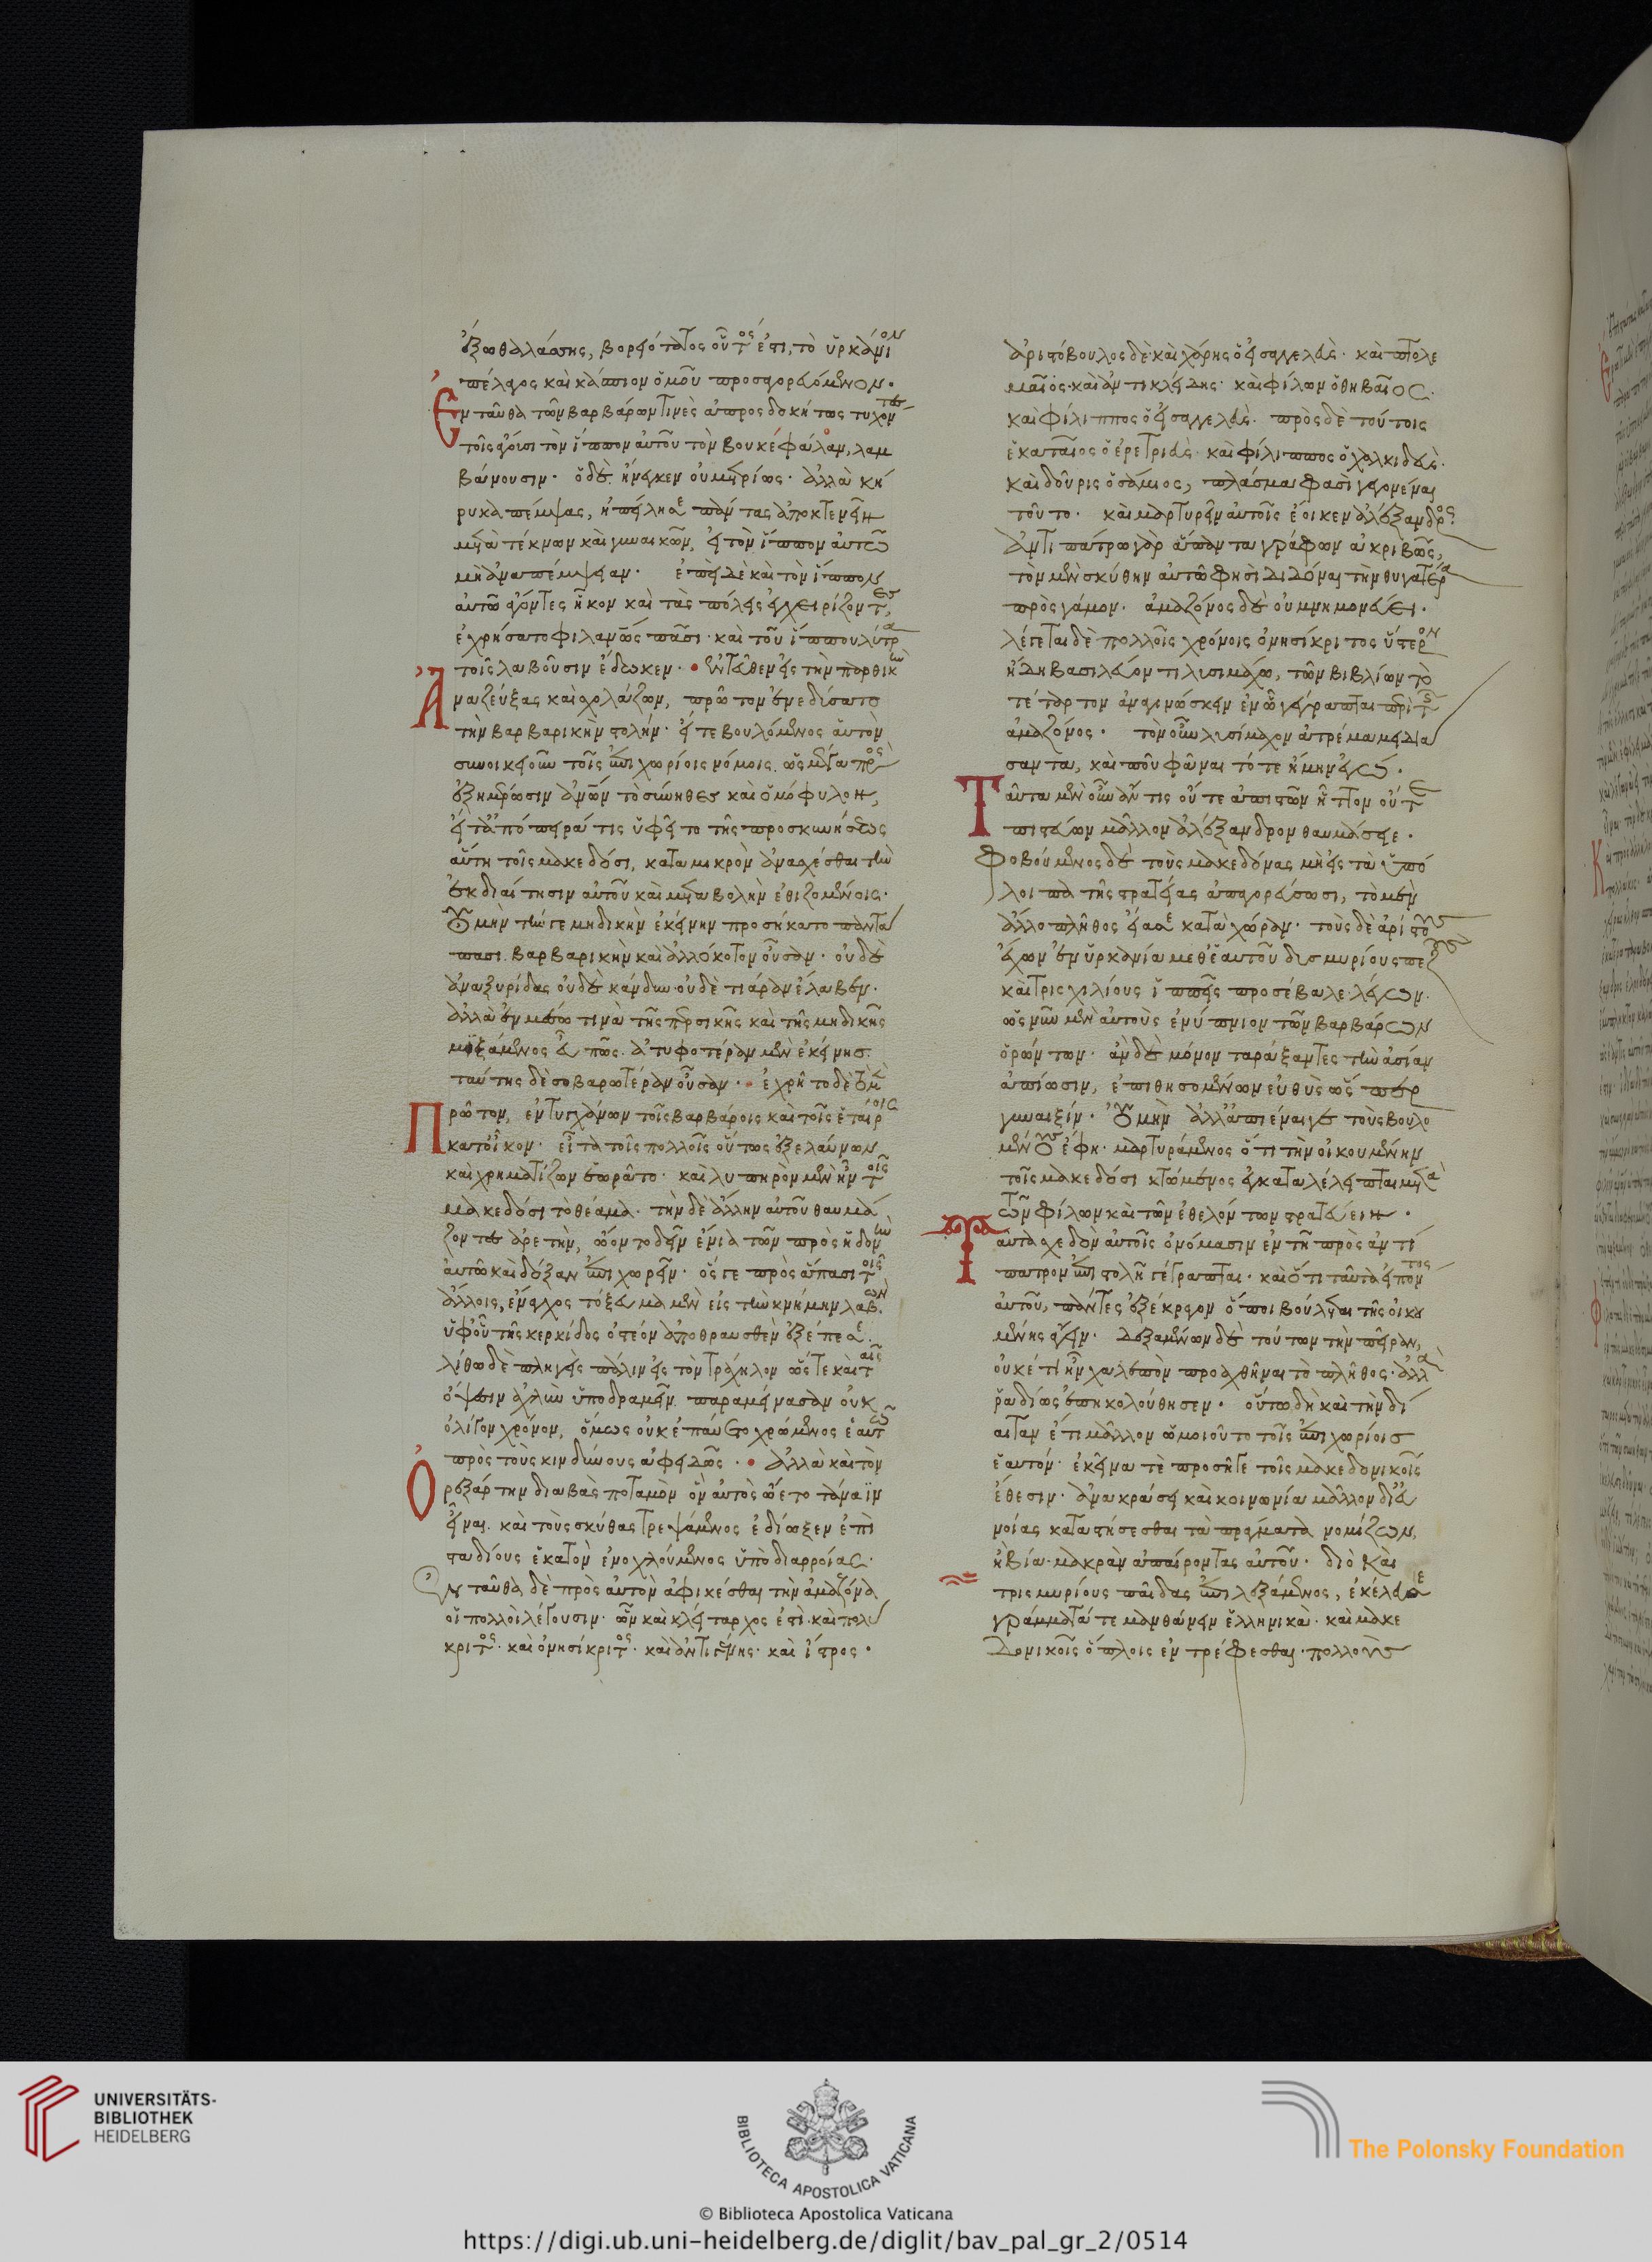 ἔξω θαλάσσης, βορειότατος οὗτός ἐστι, τὸ ὑρκάνιον
πέλαγος καὶ κάσπιον ὁμοῦ προσαγορευόμενον.
Ἐνταῦθα τῶν βαρβάρων τινὲς ἀπροσδοκήτως τυχόντες
τοῖς ἄγουσι τὸν ἵππον αὐτοῦ τὸν βουκεφάλαν, λαμ
βάνουσιν. ὁ δὲ ἤνεγκεν οὐ μετρίως. ἀλλὰ κή
ρυκα πέμψας, ἠπείλησε πάντας ἀποκτενεῖν
μετὰ τέκνων καὶ γυναικῶν, εἰ τὸν ἵππον αὐτῶ
μὴ ἀναπέμψειαν. ἐπεὶ δὲ καὶ τὸν ἵππον
αὐτῶ ἄγοντες ἧκον καὶ τὰς πόλεις ἐγχειρίζοντες,
ἐχρήσατο φιλανθρώπως πᾶσι. καὶ τοῦ ἵππου λύτρα
τοῖς λαβοῦσιν ἔδωκεν. ἐντεῦθεν εἰς τὴν παρθικὴν
Ἀναζεύξας καὶ σχολάζων, πρῶτον ἐνεδύσατο
τὴν βαρβαρικὴν στολήν. εἴτε βουλόμενος αὑτὸν
συνοικειοῦν τοῖς ἐπιχωρίοις νόμοις. ὡς μέγα πρὸς
ἐξημέρωσιν ἀνθρώπων τὸ σύνηθες καὶ ὁμόφυλον,
εἴτ' ἀπόπειρά τις ὑφεῖτο τῆς προσκυνήσεως
αὕτη τοῖς μακεδόσι, κατὰ μικρὸν ἀνασχέσθαι τὴν
ἐκδιαίτησιν αὐτοῦ καὶ μεταβολὴν ἐθιζομένοις.
οὐ μὴν τήν γε μηδικὴν ἐκείνην προσήκατο παντά
πασι βαρβαρικὴν καὶ ἀλλόκοτον οὖσαν. οὐδὲ
ἀναξυρίδας οὐδὲ κάνδυν οὐδὲ τιάραν ἔλαβεν.
ἀλλὰ ἐν μέσω τινὰ τῆς περσικῆς καὶ τῆς μηδικῆς
μιξάμενος εὖ πως. ἀτυφοτέραν μὲν ἐκείνης.
ταύτης δὲ σοβαρωτέραν οὖσαν. ἐχρῆτο δὲ τὸ μὲν
Πρῶτον, ἐντυγχάνων τοῖς βαρβάροις καὶ τοῖς ἑταίροις
κατοῖκον. εἶτα τοῖς πολλοῖς οὕτως ἐξελαύνων
καὶ χρηματίζων ἑωρᾶτο. καὶ λυπηρὸν μὲν ἦν τοῖς
μακεδόσι τὸ θέαμα. τὴν δὲ ἄλλην αὐτοῦ θαυμά
ζοντες ἀρετὴν, ὤοντο δεῖν ἔνια τῶν πρὸς ἡδονὴν
αὐτῶ καὶ δόξαν ἐπιχωρεῖν. ὅς γε πρὸς ἅπασι τοῖς
ἄλλοις, ἔναγχος τόξευμα μὲν εἰς τὴν κνήμην λαβὼν.
ὑφ' οὗ τῆς κερκίδος ὀστέον ἀποθραυσθὲν ἐξέπεσε.
λίθω δὲ πληγεὶς πάλιν εἰς τὸν τράχηλον ὥστε καὶ ταῖς
ὄψεσιν ἀχλὺν ὑποδραμεῖν. παραμείνασαν οὐκ
ὀλίγον χρόνον, ὅμως οὐκ ἐπαύετο χρώμενος ἑαυτῶ
πρὸς τοὺς κινδύνους ἀφειδῶς. ἀλλὰ καὶ τὸν
Ὀρεξάρτην διαβὰς ποταμὸν ὃν αὐτὸς ὤετο τάναϊν
εἶναι. καὶ τοὺς σκύθας τρεψάμενος ἐδίωξεν ἐπὶ
σταδίους ἑκατὸν ἐνοχλούμενος ὑπὸ διαρροίας.
Ἐνταῦθα δὲ πρὸς αὐτὸν ἀφικέσθαι τὴν ἀμαζόνα
οἱ πολλοὶ λέγουσιν. ὧν καὶ κλείταρχος ἐστὶ. καὶ πολύ
κριτος. καὶ ὀνησίκριτος. καὶ ἀντιγένης. καὶ ἴστρος.
ἀριστόβουλος δὲ. καὶ χάρης ὁ εἰσαγγελεὺς. καὶ πτολε
μαῖος. καὶ ἀντικλείδης. καὶ φίλων ὁ θηβαῖος.
καὶ φίλιππος ὁ εἰσαγγελεὺς. πρὸς δὲ τούτοις
ἑκαταῖος ὁ ἐρετριεὺς. καὶ φίλιππος ὁ χαλκιδεὺς.
καὶ δοῦρις ὁ σάμιος, πλάσμα φασὶ γεγονέναι
τοῦτο. καὶ μαρτυρεῖν αὐτοῖς ἔοικεν ἀλέξανδρος.
ἀντιπάτρω γὰρ ἅπαντα γράφων ἀκριβῶς,
τὸν μὲν σκύθην αὐτῶ φησὶ διδόναι τὴν θυγατέρα
πρὸς γάμον. ἀμαζόνος δὲ οὐ μνημονεύει.
λέγεται δὲ πολλοῖς χρόνοις ὀνησίκριτος ὕστερον
ἤδη βασιλεύοντι λυσιμάχω, τῶν βιβλίων τὸ
τέταρτον ἀναγινώσκειν ἐν ὧ γέγραπται περὶ τῆς
ἀμαζόνος. τὸν οὖν λυσίμαχον ἀτρέμα μειδιά
σαντα, καὶ ποῦ φάναι τότε ἤμην ἐγώ.
Ταῦτα μὲν οὖν ἄν τις οὔτε ἀπιστῶν ἧττον οὔτε
πιστεύων μᾶλλον ἀλέξανδρον θαυμάσειε.
Φοβούμενος δὲ τοὺς μακεδόνας μὴ εἰς τὰ ὑπό
λοιπα τῆς στρατείας ἀπαγορεύσωσι, τὸ μὲν
ἄλλο πλῆθος εἴασε κατὰ χώραν. τοὺς δὲ ἀρίστους
ἔχων ἐν ὑρκανία μεθ' ἑαυτοῦ δισμυρίους πεζοὺς
καὶ τρισχιλίους ἱππεῖς προσέβαλε λέγων.
ὡς νῦν μὲν αὐτοὺς ἐνύπνιον τῶν βαρβάρων
ὁρώντων. ἂν δὲ μόνον ταράξαντες τὴν ἀσίαν
ἀπίωσιν, ἐπιθησομένων εὐθὺς ὥσπερ
γυναιξίν. οὐ μὴν ἀλλ' ἀπιέναι γε τοὺς βουλο
μένους ἔφη. μαρτυράμενος ὅτι τὴν οἰκουμένην
τοῖς μακεδόσι κτώμενος ἐγκαταλέλειπται μετὰ
τῶν φίλων καὶ τῶν ἐθελόντων στρατεύειν.
Ταῦτα σχεδὸν αὐτοῖς ὀνόμασιν ἐν τῆ πρὸς ἀντί
πατρον ἐπιστολῆ γέγραπται. καὶ ὅτι ταῦτα εἰπόντος
αὐτοῦ, πάντες ἐξέκραγον ὅποι βούλεται τῆς οἰκου
μένης ἄγειν. δεξαμένων δὲ τούτων τὴν πεῖραν,
οὐκέτι ἦν χαλεπὸν προαχθῆναι τὸ πλῆθος. ἀλλὰ
ῥαδίως ἐπηκολούθησεν. οὕτω δὴ καὶ τὴν δί
αιταν ἔτι μᾶλλον ὡμοιοῦτο τοῖς ἐπιχωρίοις
ἑαυτόν. ἐκεῖνα τὲ προσῆγε τοῖς μακεδονικοῖς
ἔθεσιν. ἀνακράσει καὶ κοινωνία μᾶλλον δι' εὐ
νοίας καταστήσεσθαι τὰ πράγματα νομίζων,
ἢ βία. μακρὰν ἀπαίροντος αὐτοῦ. διὸ καὶ
τρισμυρίους παῖδας ἐπιλεξάμενος, ἐκέλευσε
γράμματά τε μανθάνειν ἑλληνικὰ. καὶ μακε
δονικοῖς ὅπλοις ἐντρέφεσθαι. πολλοὺς
UNIVERSITÄTS-
BIBLIOTHEK
HEIDELBERG
BIBLIOTECA APOSTOLICA VATICANA
© Biblioteca Apostolica Vaticana
The Polonsky Foundation
https://digi.ub.uni-heidelberg.de/diglit/bav_pal_gr_2/0514